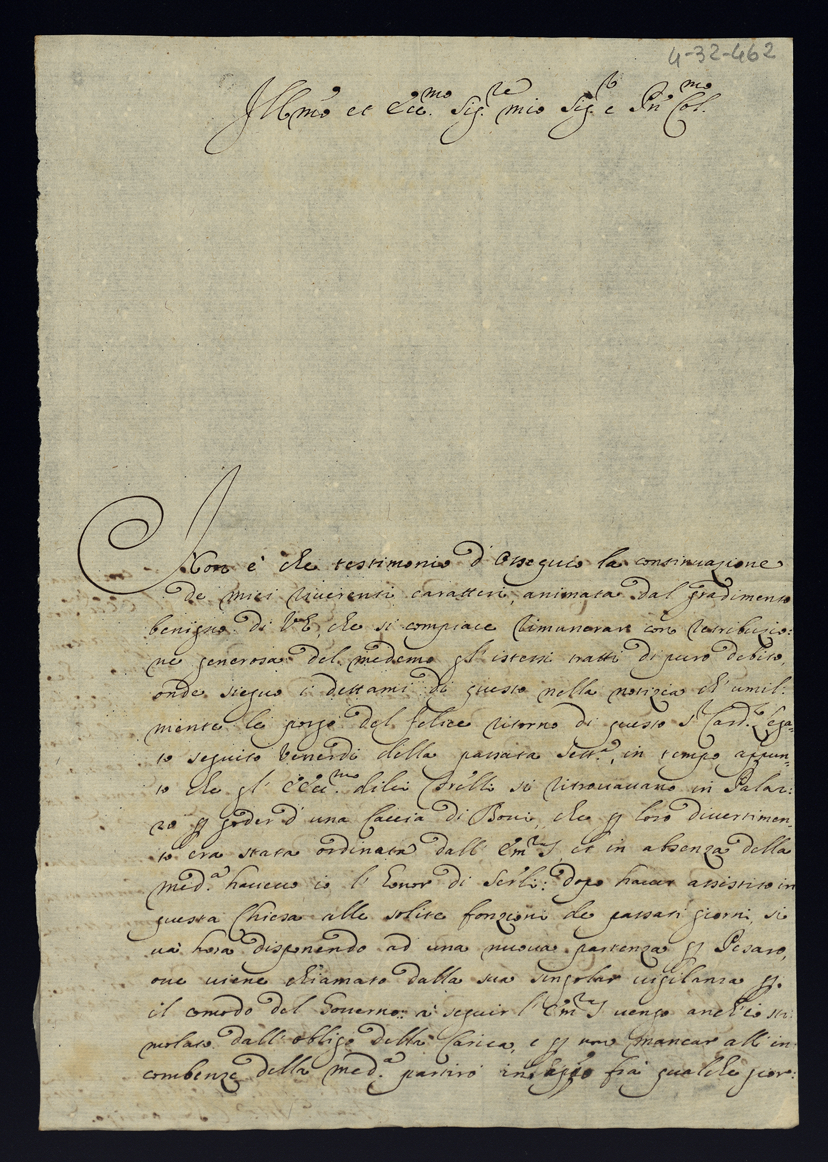 4-32-462
Ill.mo et Ecc.mo Sig.re mio Sig.r e Pn Col.mo
Non è che testimonio d'Ossequio la continuazione
de miei riverenti caratteri, animata dal gradimento
benigno di V.E., che si compiace rimunerar con retribuzio:
ne generosa del medemo gl'istessi tratti di puro debito,
onde sieguo i dettami di questo nella notizia ch'umil:
mente le porgo del felice ritorno di questo S.r Card.le Lega:
to seguito Venerdì della passata Sett.a, in tempo appun:
to che gl'Ecc.mi di lei si ritrovavano in Palaz:
zo p goder d'una Caccia di Bovi, che p loro divertimen:
to era stata ordinata dall'Em.za S. et in absenza della
med.a havevo io l'honor di Ser.li: dopo haver assistito in
questa Chiesa alle solite fonzioni de passati giorni, si
và hora disponendo ad una nuova partenza p Pesaro,
ove viene chiamato dalla sua singolar vigilanza p
il comodo del Governo: à seguir l'Em.za S. vengo anch'io sti:
molato dall'obligo della Carica, e p non mancar all'in:
combenze della med.a partirò frà qualche gior: